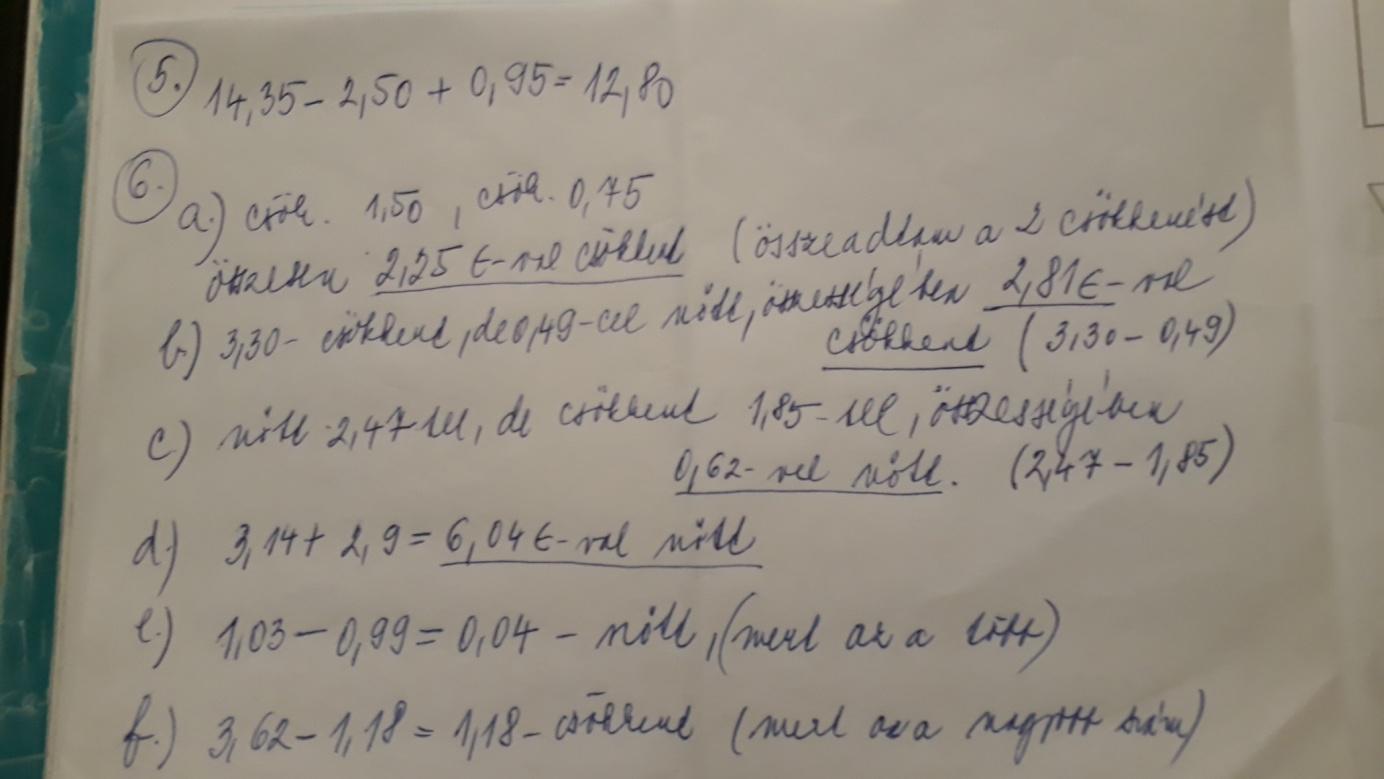 5. 14,35 - 2,50 + 0,95 = 12,80
6. a.) csök. 1,50, csök. 0,75
összesen 2,25 €-val csökkent (összeadtam a 2 csökkenést)
b.) 3,30- csökkent, de 0,49-cel nőtt, összességében 2,81€-val
csökkent (3,30 - 0,49)
c) nőtt 2,47-tel, de csökkent 1,85-tel, összességében
0,62-vel nőtt. (2,47 - 1,85)
d.) 3,14 + 2,9 = 6,04 €-val nőtt
e.) 1,03 - 0,99 = 0,04 - nőtt, (mert az a több)
f.) 3,62 - 1,18 = 1,18 - csökkent (mert az a nagyobb szám)